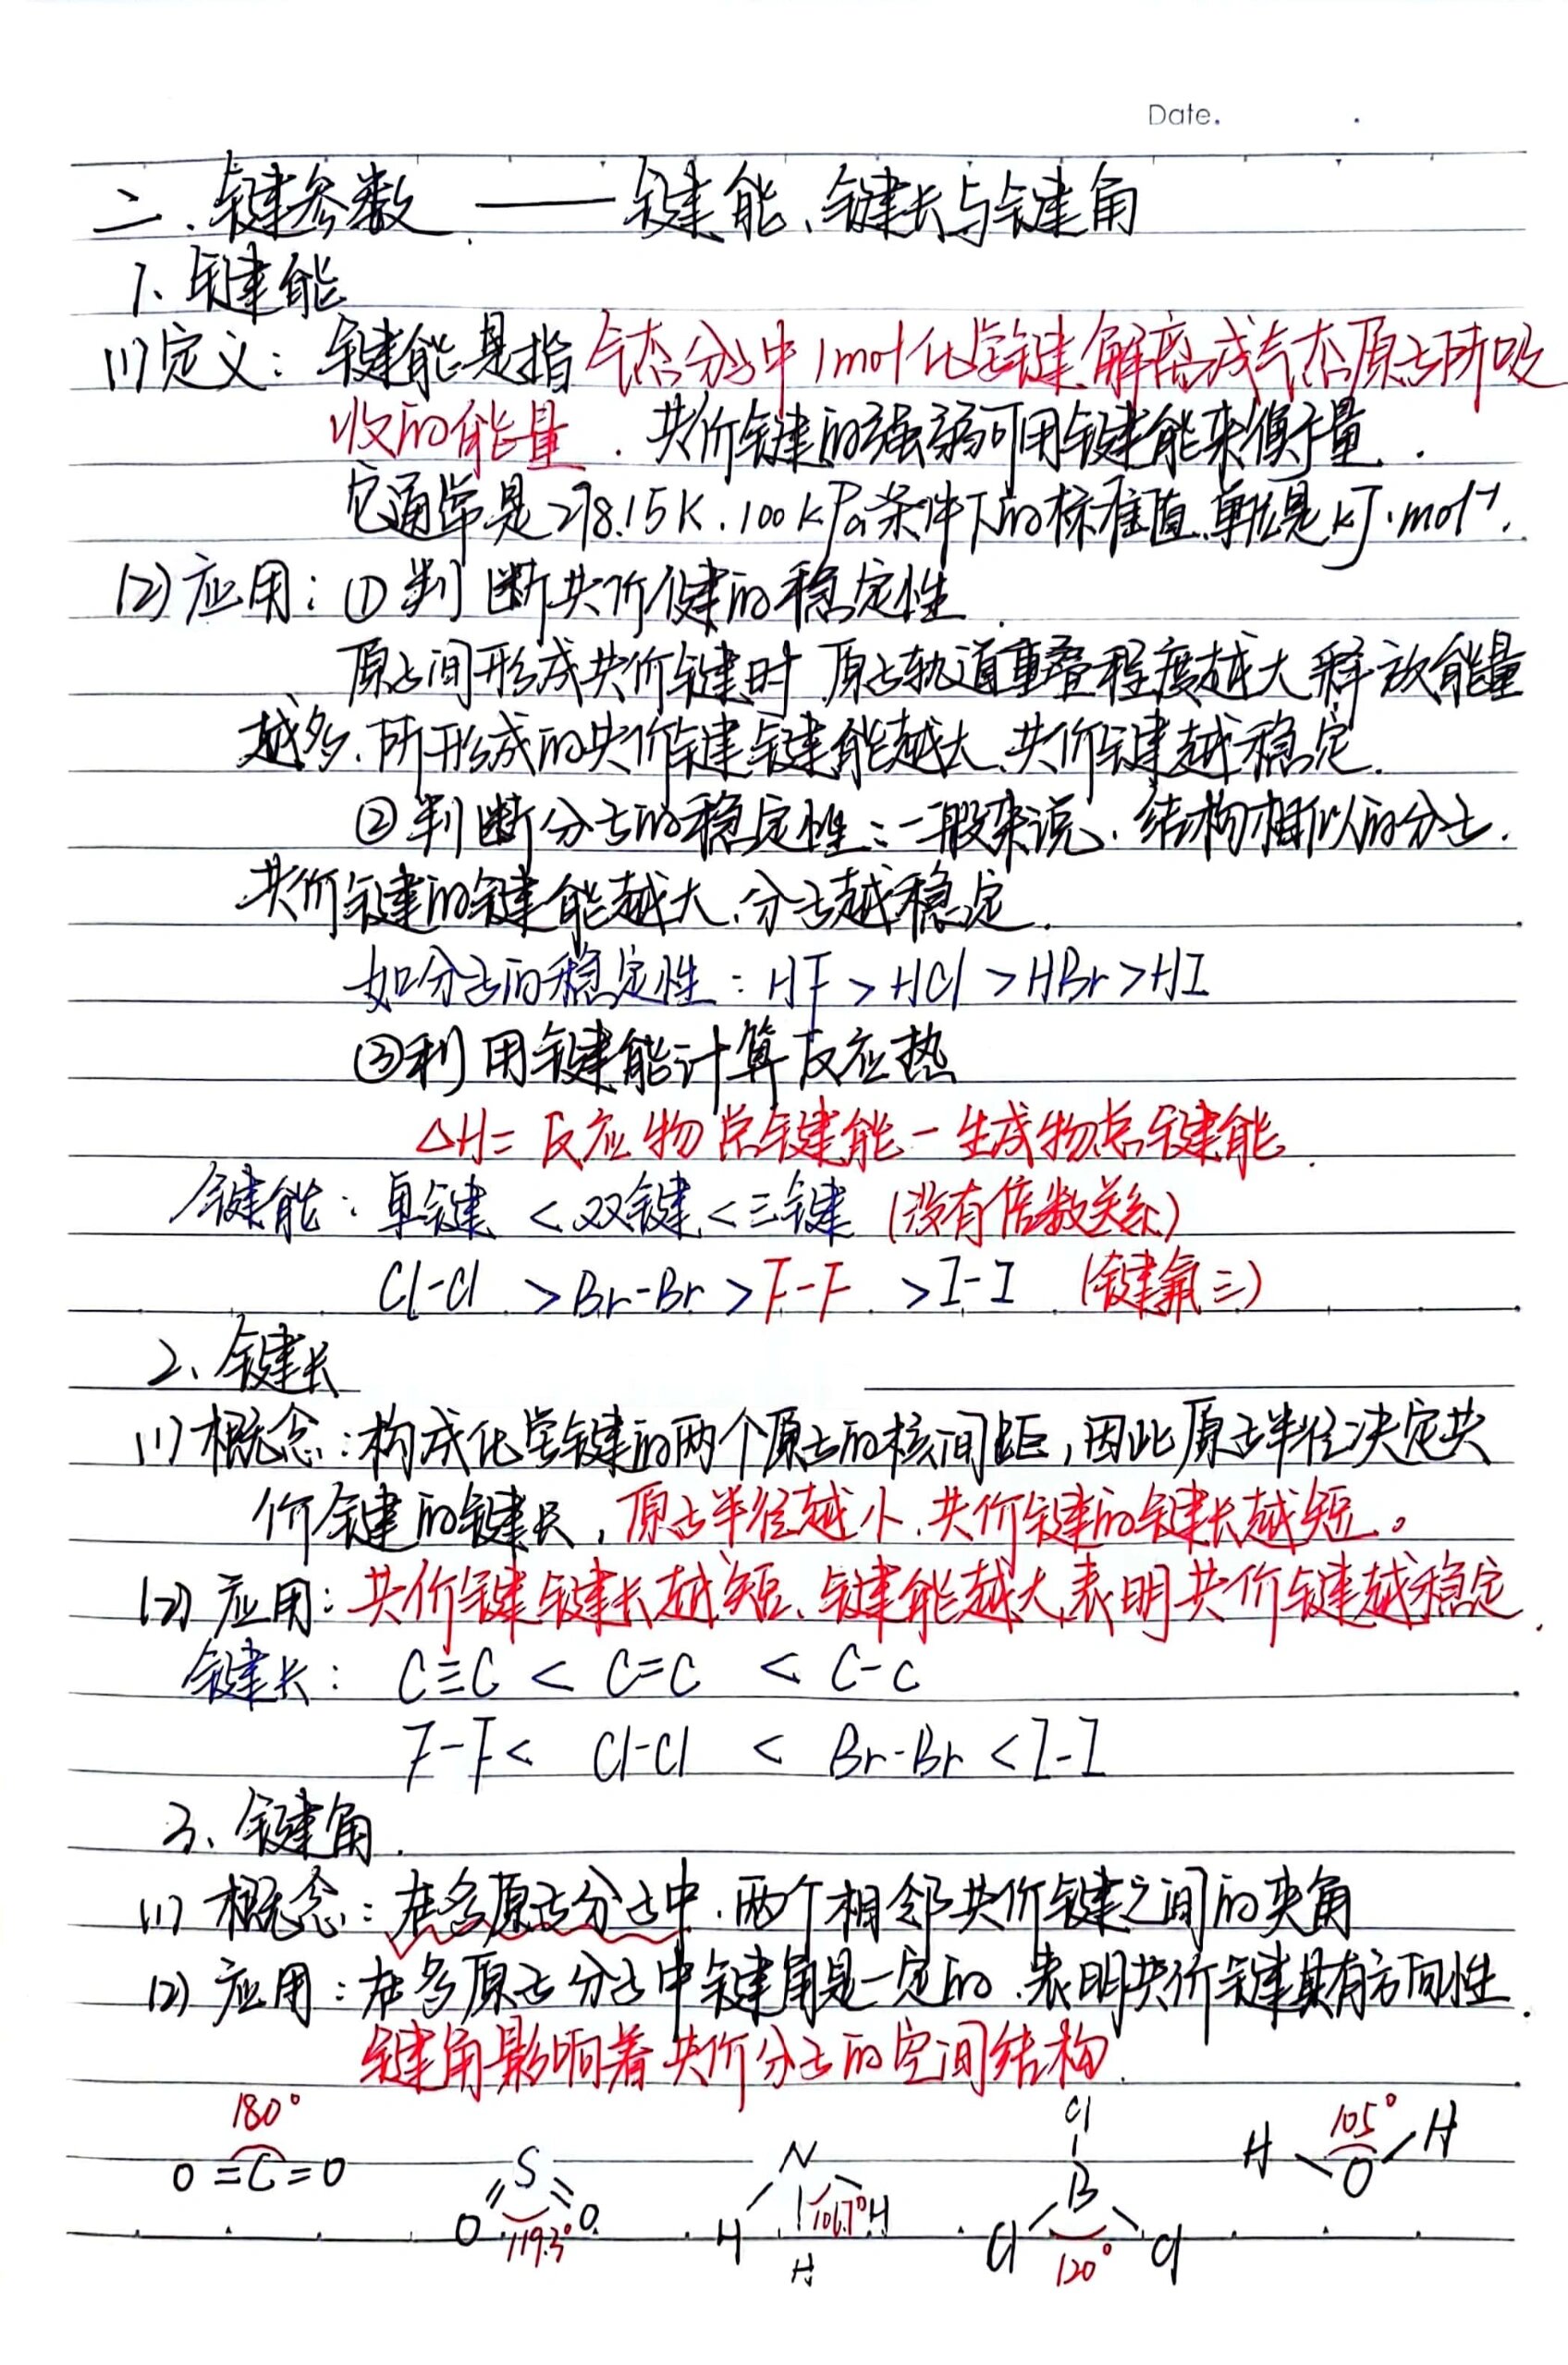 Date.
二、键参数——键能、键长与键角
1、键能
(1)定义：键能是指气态分子中1mol化学键解离成气态原子所吸
收的能量．共价键的强弱可用键能来衡量．
它通常是298.15K、100kPa条件下的标准值，单位是kJ·mol⁻¹．
(2)应用：①判断共价健的稳定性
原子间形成共价键时，原子轨道重叠程度越大，释放能量
越多，所形成的共价键键能越大，共价键越稳定．
②判断分子的稳定性：一般来说，结构相似的分子，
共价键的键能越大，分子越稳定．
如分子的稳定性：HF>HCl>HBr>HI
③利用键能计算反应热
△H=反应物总键能－生成物总键能．
键能：单键<双键<三键（没有倍数关系）
Cl-Cl>Br-Br>F-F>I-I（键氟三）
2、键长
(1)概念：构成化学键的两个原子的核间距，因此原子半径决定共
价键的键长，原子半径越小，共价键的键长越短。
(2)应用：共价键键长越短，键能越大，表明共价键越稳定．
键长：C≡C < C=C < C-C
F-F < Cl-Cl < Br-Br < I-I
3、键角．
(1)概念：在多原子分子中，两个相邻共价键之间的夹角
(2)应用：在多原子分子中键角是一定的，表明共价键具有方向性．
键角影响着共价分子的空间结构．
180° Cl 105°
O=C=O S N B H O H
O O H H H Cl Cl
119.3° 106.7° 120°